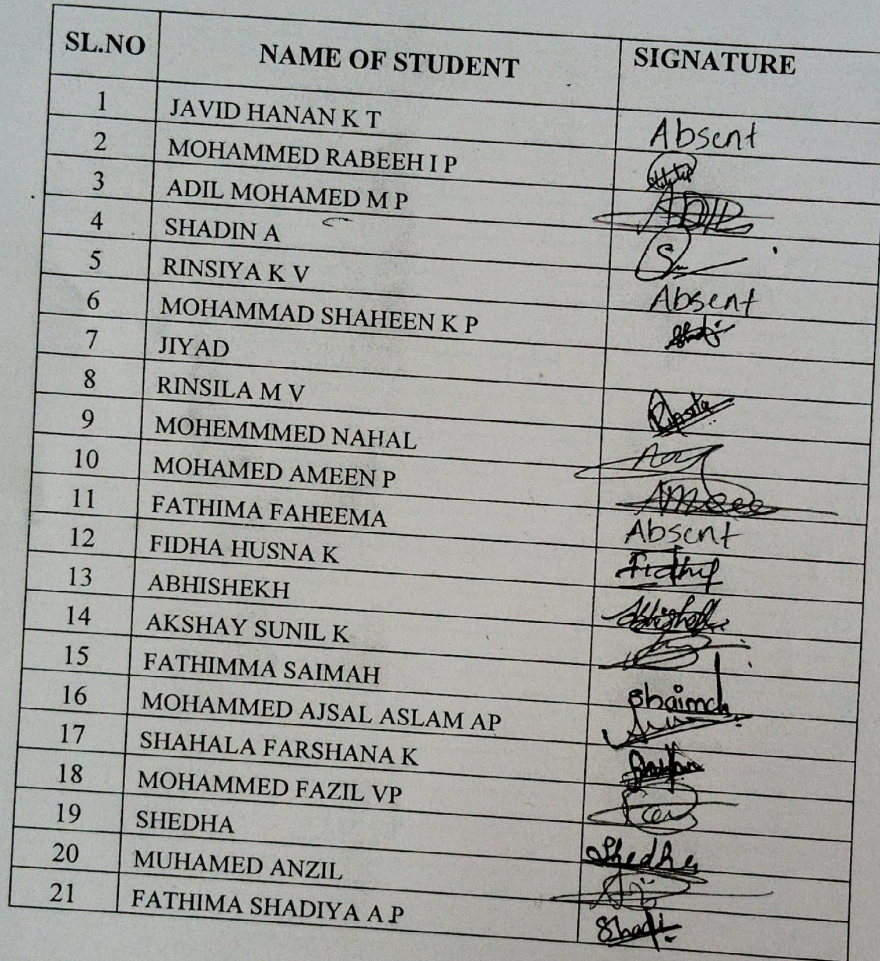 SL.NO NAME OF STUDENT SIGNATURE
1 JAVID HANAN K T Absent
2 MOHAMMED RABEEH I P
3 ADIL MOHAMED M P ADIL
4 SHADIN A
5 RINSIYA K V Absent
6 MOHAMMAD SHAHEEN K P
7 JIYAD
8 RINSILA M V
9 MOHEMMMED NAHAL
10 MOHAMED AMEEN P
11 FATHIMA FAHEEMA Absent
12 FIDHA HUSNA K
13 ABHISHEKH
14 AKSHAY SUNIL K
15 FATHIMMA SAIMAH
16 MOHAMMED AJSAL ASLAM AP
17 SHAHALA FARSHANA K
18 MOHAMMED FAZIL VP
19 SHEDHA Shedha
20 MUHAMED ANZIL
21 FATHIMA SHADIYA A P